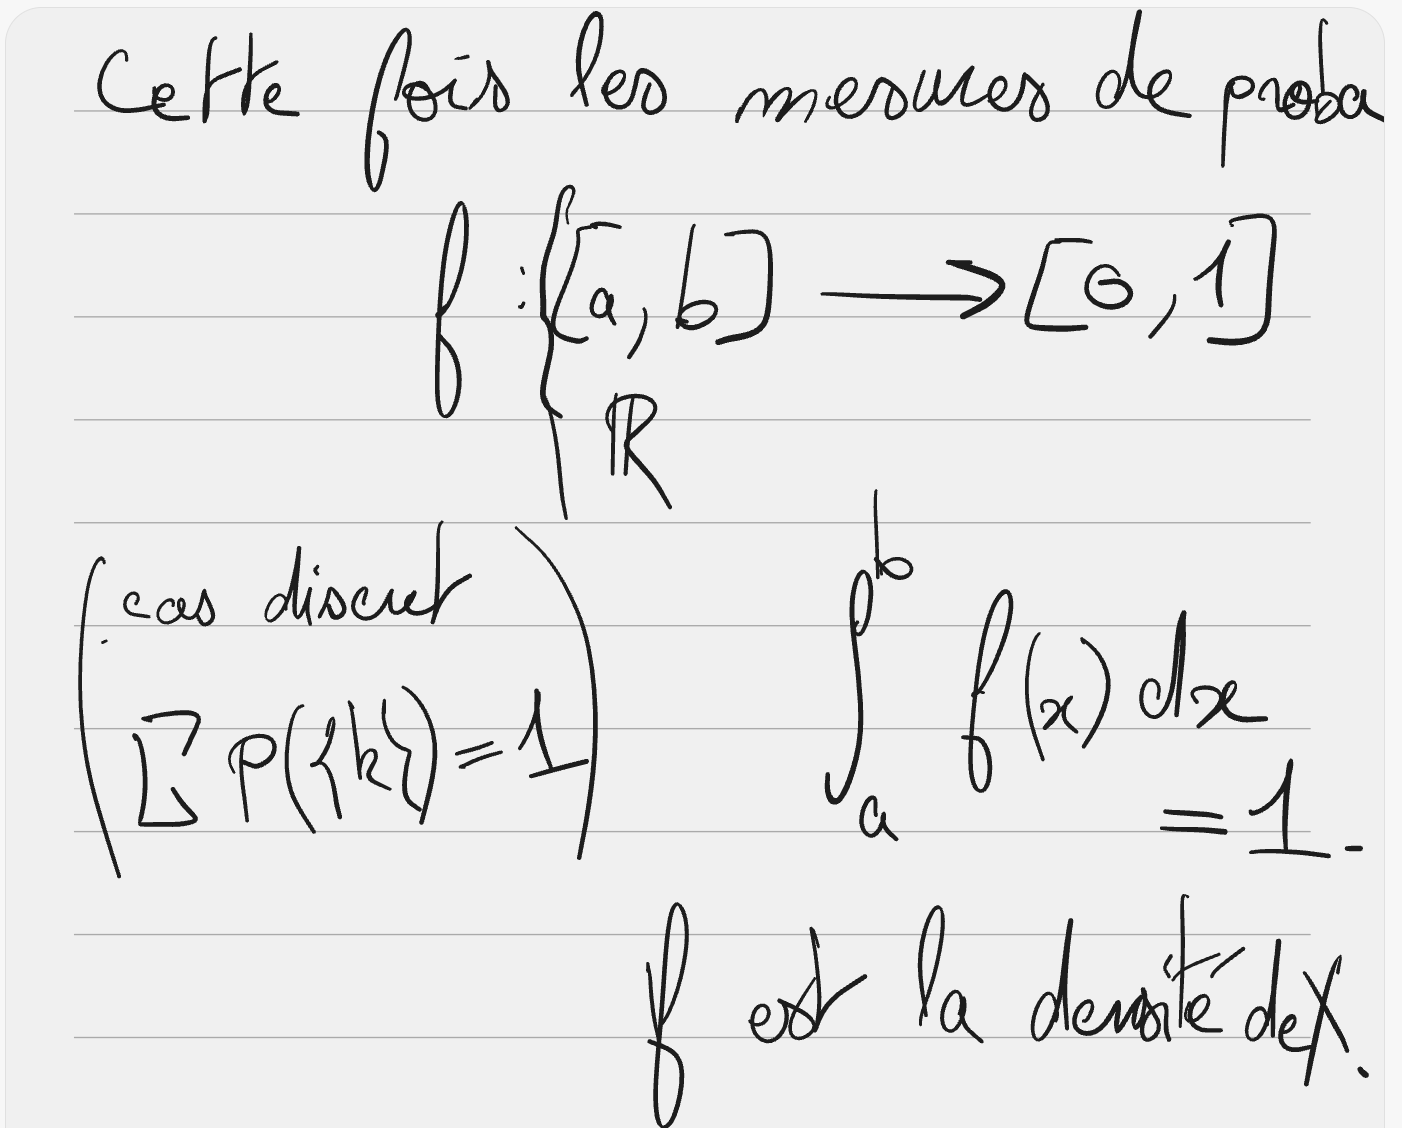 Cette fois les mesures de proba
f : { [a, b] ⟶ [0, 1]
ℝ
(cas discret
∑ P({k}) = 1)
∫_a^b f(x) dx
= 1.
f est la densité de X.